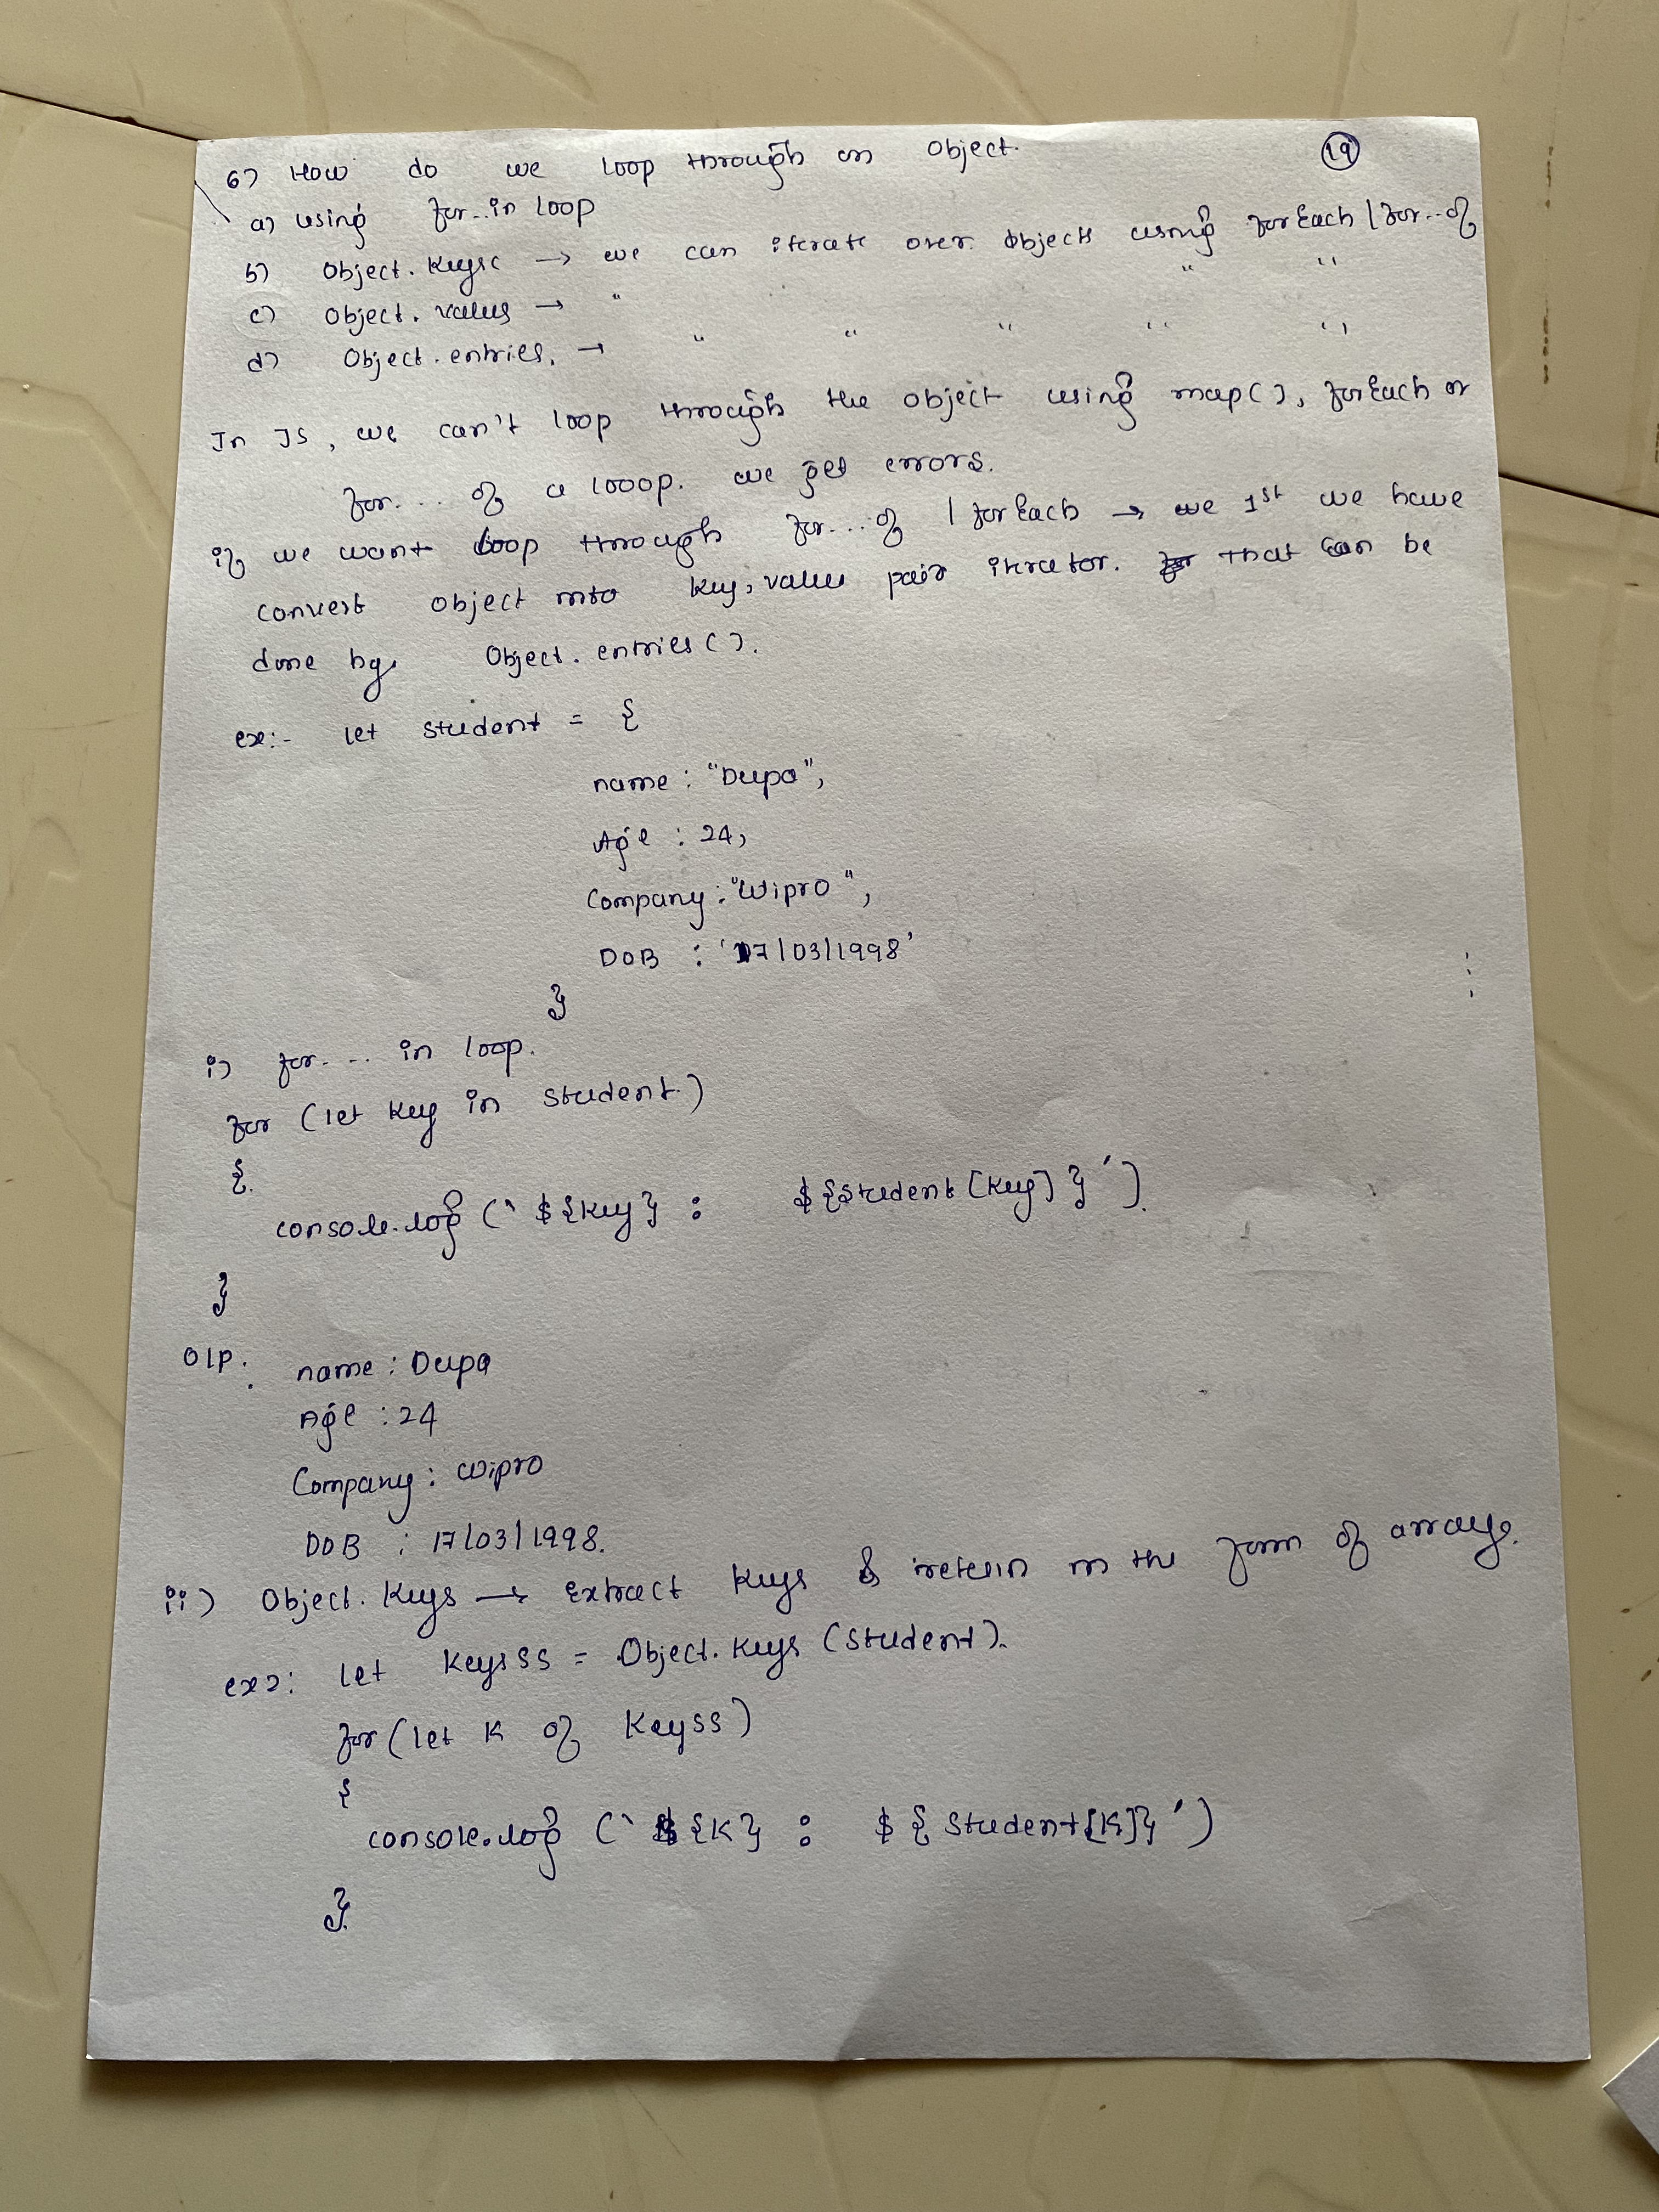 6) How do we loop through an object. 19
a) using for...in loop
b) Object.keys( → we can iterate over objects using forEach / for...of
c) Object.values → " " "
d) Object.entries, → " " " " "
In JS, we can't loop through the object using map(), forEach or
for.... of a looop. we get errors.
if we want loop through for....of / forEach → we 1st we have
convert object into key, value pair iterator. that can be
done by Object.entries().
ex:- let student = {
name : "Dupa",
Age : 24,
Company : "Wipro",
DOB : '17/03/1998'
}
i) for.... in loop.
for (let key in student)
{
console.log (` ${key} : ${student[key]} ´).
}
O/P: name : Dupa
Age : 24
Company : wipro
DOB : 17/03/1998.
ii) Object.keys → extract keys & return in the form of arrays.
ex2: let keysss = Object.keys (student).
for (let K of Keyss)
{
console.log (` ${K} : ${student[K]} ´)
}.